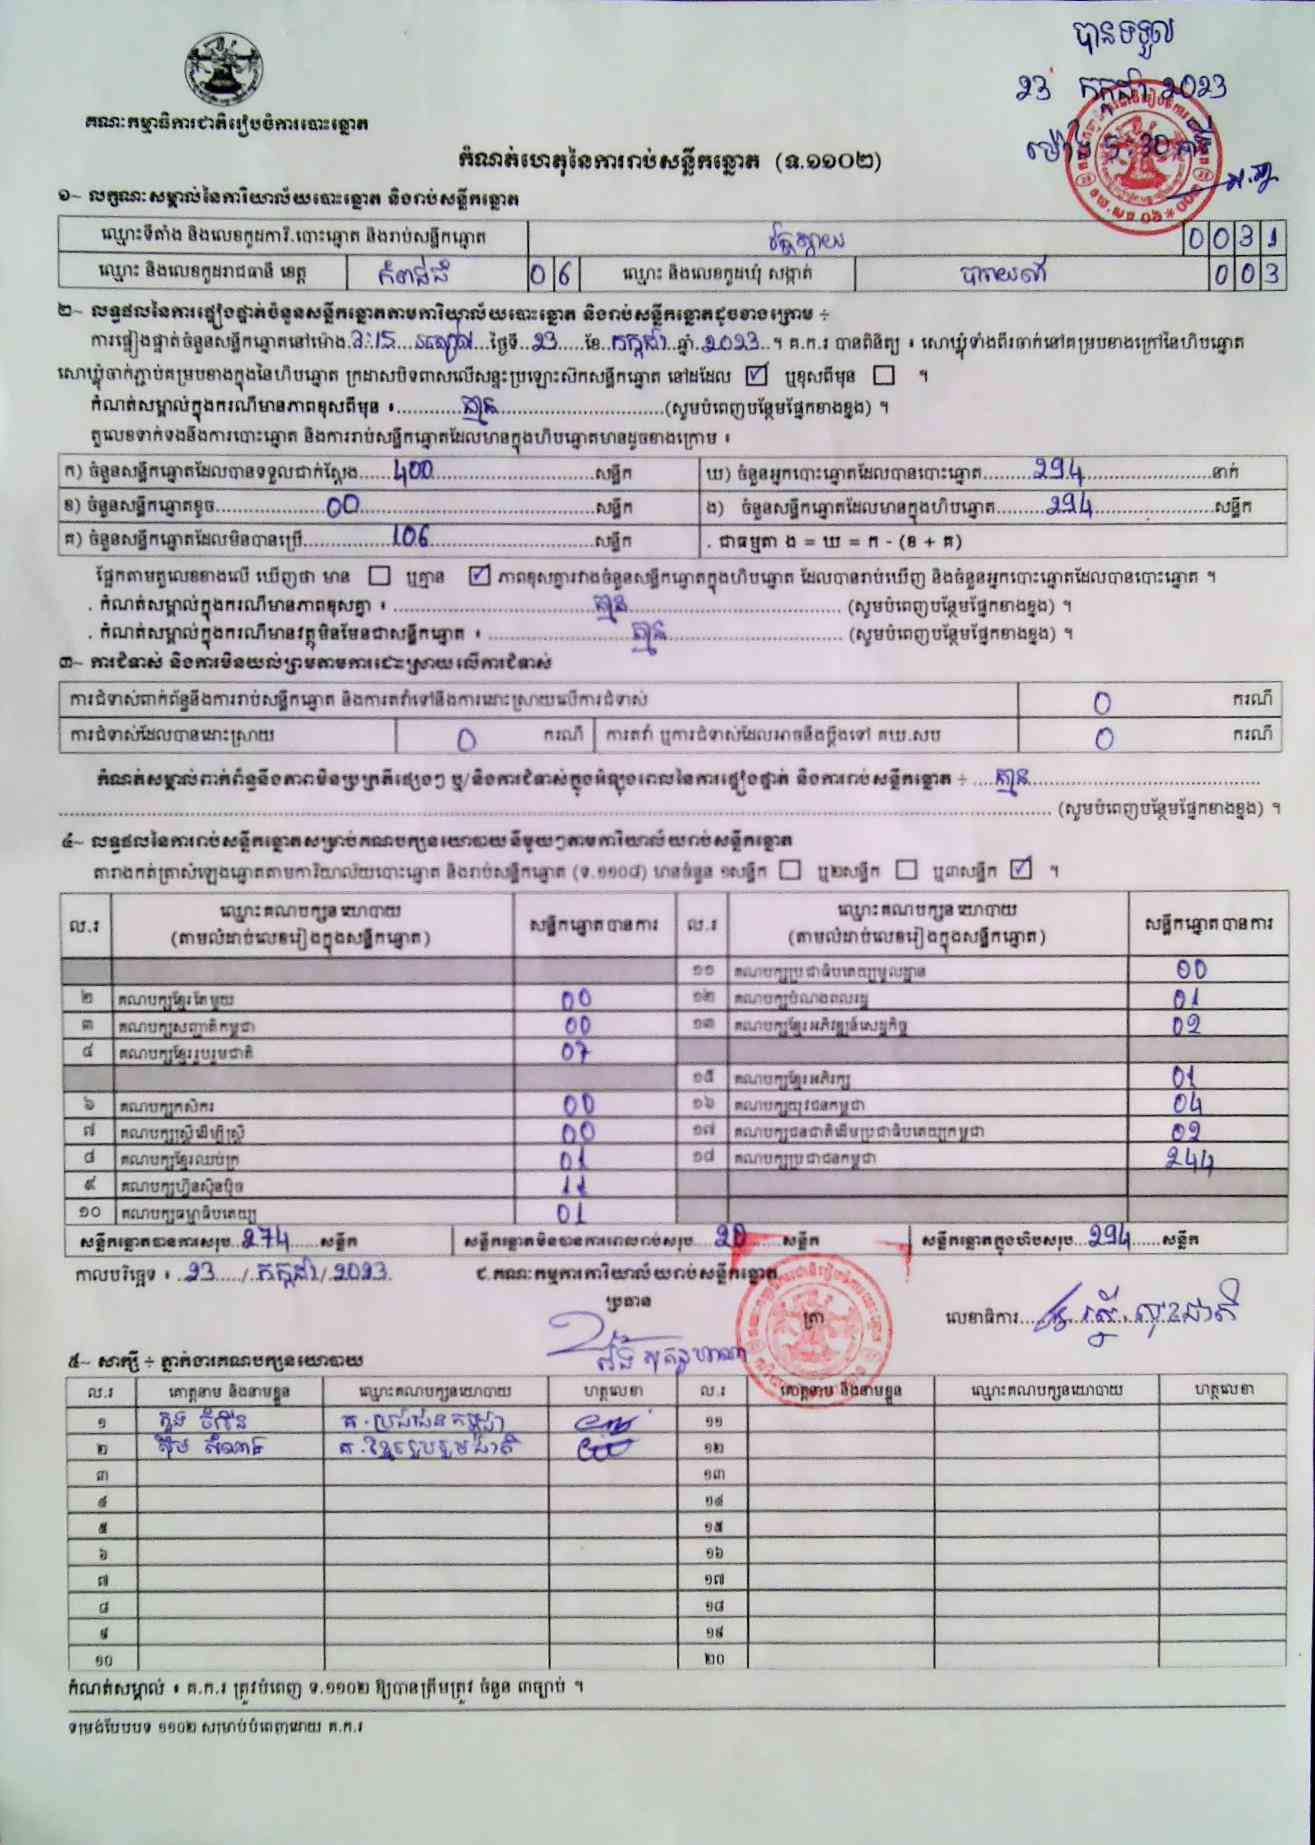 បានទទួល
23 កក្កដា 2023
ម៉ោង 5:30
គណៈកម្មាធិការជាតិរៀបចំការបោះឆ្នោត
កំណត់ហេតុនៃការរាប់សន្លឹកឆ្នោត (ទ.១១០២)
១~ លក្ខណៈសម្គាល់នៃការិយាល័យបោះឆ្នោត និងរាប់សន្លឹកឆ្នោត
ឈ្មោះទីតាំង និងលេខកូដការិ.បោះឆ្នោត និងរាប់សន្លឹកឆ្នោត វត្តស្វាយ 0031
ឈ្មោះ និងលេខកូដរាជធានី ខេត្ត កំពង់ធំ 06 ឈ្មោះ និងលេខកូដឃុំ សង្កាត់ 003
២~ លទ្ធផលនៃការផ្ទៀងផ្ទាត់ចំនួនសន្លឹកឆ្នោតតាមការិយាល័យបោះឆ្នោត និងរាប់សន្លឹកឆ្នោតដូចខាងក្រោម ÷
ការផ្ទៀងផ្ទាត់ចំនួនសន្លឹកឆ្នោតនៅម៉ោង 3:15 រសៀល ថ្ងៃទី 23 ខែ កក្កដា ឆ្នាំ 2023 ។ គ.ក.រ បានពិនិត្យ ៖ សោឃ្លុំទាំងពីរចាក់នៅគម្របខាងក្រៅនៃហិបឆ្នោត
សោឃ្លុំចាក់ភ្ជាប់គម្របខាងក្នុងនៃហិបឆ្នោត ក្រដាសបិទពាសលើសន្ទះប្រឡោះសិកសន្លឹកឆ្នោត នៅដដែល ☑ ឬខុសពីមុន ☐ ។
កំណត់សម្គាល់ក្នុងករណីមានភាពខុសពីមុន ៖ គ្មាន (សូមបំពេញបន្ថែមផ្នែកខាងខ្នង) ។
តួលេខទាក់ទងនឹងការបោះឆ្នោត និងការរាប់សន្លឹកឆ្នោតដែលមានក្នុងហិបឆ្នោតមានដូចខាងក្រោម ៖
ក) ចំនួនសន្លឹកឆ្នោតដែលបានទទួលជាក់ស្តែង 400 សន្លឹក ឃ) ចំនួនអ្នកបោះឆ្នោតដែលបានបោះឆ្នោត 294 នាក់
ខ) ចំនួនសន្លឹកឆ្នោតខូច 00 សន្លឹក ង) ចំនួនសន្លឹកឆ្នោតដែលមានក្នុងហិបឆ្នោត 294 សន្លឹក
គ) ចំនួនសន្លឹកឆ្នោតដែលមិនបានប្រើ 106 សន្លឹក . ជាធម្មតា ង = ឃ = ក - (ខ + គ)
ផ្អែកតាមតួលេខខាងលើ ឃើញថា មាន ☐ ឬគ្មាន ☑ ភាពខុសគ្នារវាងចំនួនសន្លឹកឆ្នោតក្នុងហិបឆ្នោត ដែលបានរាប់ឃើញ និងចំនួនអ្នកបោះឆ្នោតដែលបានបោះឆ្នោត ។
. កំណត់សម្គាល់ក្នុងករណីមានភាពខុសគ្នា ៖ គ្មាន (សូមបំពេញបន្ថែមផ្នែកខាងខ្នង) ។
. កំណត់សម្គាល់ក្នុងករណីមានវត្ថុមិនមែនជាសន្លឹកឆ្នោត ៖ គ្មាន (សូមបំពេញបន្ថែមផ្នែកខាងខ្នង) ។
៣~ ការជំទាស់ និងការមិនយល់ព្រមតាមការដោះស្រាយលើការជំទាស់
ការជំទាស់ពាក់ព័ន្ធនឹងការរាប់សន្លឹកឆ្នោត និងការតវ៉ាទៅនឹងការដោះស្រាយលើការជំទាស់ 0 ករណី
ការជំទាស់ដែលបានដោះស្រាយ 0 ករណី ការតវ៉ា ឬការជំទាស់ដែលអាចនឹងប្តឹងទៅ គឃ.សប 0 ករណី
កំណត់សម្គាល់ពាក់ព័ន្ធនឹងភាពមិនប្រក្រតីផ្សេងៗ ឬ/និងការជំទាស់ក្នុងអំឡុងពេលនៃការផ្ទៀងផ្ទាត់ និងការរាប់សន្លឹកឆ្នោត ÷ គ្មាន
(សូមបំពេញបន្ថែមផ្នែកខាងខ្នង) ។
៤~ លទ្ធផលនៃការរាប់សន្លឹកឆ្នោតសម្រាប់គណបក្សនយោបាយនីមួយៗតាមការិយាល័យរាប់សន្លឹកឆ្នោត
តារាងកត់ត្រាសំឡេងឆ្នោតតាមការិយាល័យបោះឆ្នោត និងរាប់សន្លឹកឆ្នោត (ទ.១១០៨) មានចំនួន ១សន្លឹក ☐ ឬ២សន្លឹក ☐ ឬ៣សន្លឹក ☑ ។
ល.រ ឈ្មោះគណបក្សនយោបាយ (តាមលំដាប់លេខរៀងក្នុងសន្លឹកឆ្នោត) សន្លឹកឆ្នោតបានការ ល.រ ឈ្មោះគណបក្សនយោបាយ (តាមលំដាប់លេខរៀងក្នុងសន្លឹកឆ្នោត) សន្លឹកឆ្នោតបានការ
១១ គណបក្សប្រជាធិបតេយ្យមូលដ្ឋាន 00
២ គណបក្សខ្មែរតែមួយ 00 ១២ គណបក្សបំណងពលរដ្ឋ 01
៣ គណបក្សសញ្ជាតិកម្ពុជា 00 ១៣ គណបក្សខ្មែរអភិវឌ្ឍន៍សេដ្ឋកិច្ច 02
៤ គណបក្សខ្មែររួបរួមជាតិ 07
១៥ គណបក្សខ្មែរអភិរក្ស 01
៦ គណបក្សកសិករ 00 ១៦ គណបក្សយុវជនកម្ពុជា 04
៧ គណបក្សស្ត្រីដើម្បីស្ត្រី 00 ១៧ គណបក្សជនជាតិដើមប្រជាធិបតេយ្យកម្ពុជា 02
៨ គណបក្សខ្មែរឈប់ក្រ 01 ១៨ គណបក្សប្រជាជនកម្ពុជា 244
៩ គណបក្សហ្វ៊ុនស៊ិនប៉ិច 11
១០ គណបក្សធម្មាធិបតេយ្យ 01
សន្លឹកឆ្នោតបានការសរុប 274 សន្លឹក សន្លឹកឆ្នោតមិនបានការពេលរាប់សរុប 20 សន្លឹក សន្លឹកឆ្នោតក្នុងហិបសរុប 294 សន្លឹក
កាលបរិច្ឆេទ ៖ 23 / កក្កដា / 2023 ជ.គណៈកម្មការការិយាល័យរាប់សន្លឹកឆ្នោត
ប្រធាន ត្រា លេខាធិការ
៥~ សាក្សី ÷ ភ្នាក់ងារគណបក្សនយោបាយ
ល.រ គោត្តនាម និងនាមខ្លួន ឈ្មោះគណបក្សនយោបាយ ហត្ថលេខា ល.រ គោត្តនាម និងនាមខ្លួន ឈ្មោះគណបក្សនយោបាយ ហត្ថលេខា
១ គ.ប្រជាជនកម្ពុជា ១១
២ ស៊ឹម សំណាង គ.ខ្មែររួបរួមជាតិ ១២
៣ ១៣
៤ ១៤
៥ ១៥
៦ ១៦
៧ ១៧
៨ ១៨
៩ ១៩
១០ ២០
កំណត់សម្គាល់ ៖ គ.ក.រ ត្រូវបំពេញ ទ.១១០២ ឱ្យបានត្រឹមត្រូវ ចំនួន ៣ច្បាប់ ។
ទម្រង់បែបបទ ១១០២ សម្រាប់បំពេញដោយ គ.ក.រ